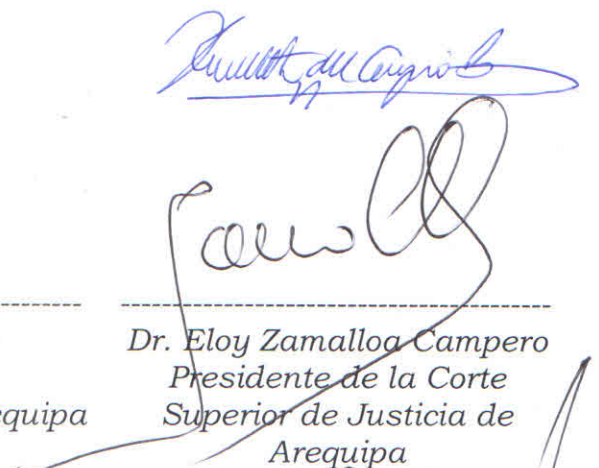 Dr. Eloy Zamalloa Campero
Presidente de la Corte
equipa Superior de Justicia de
Arequipa